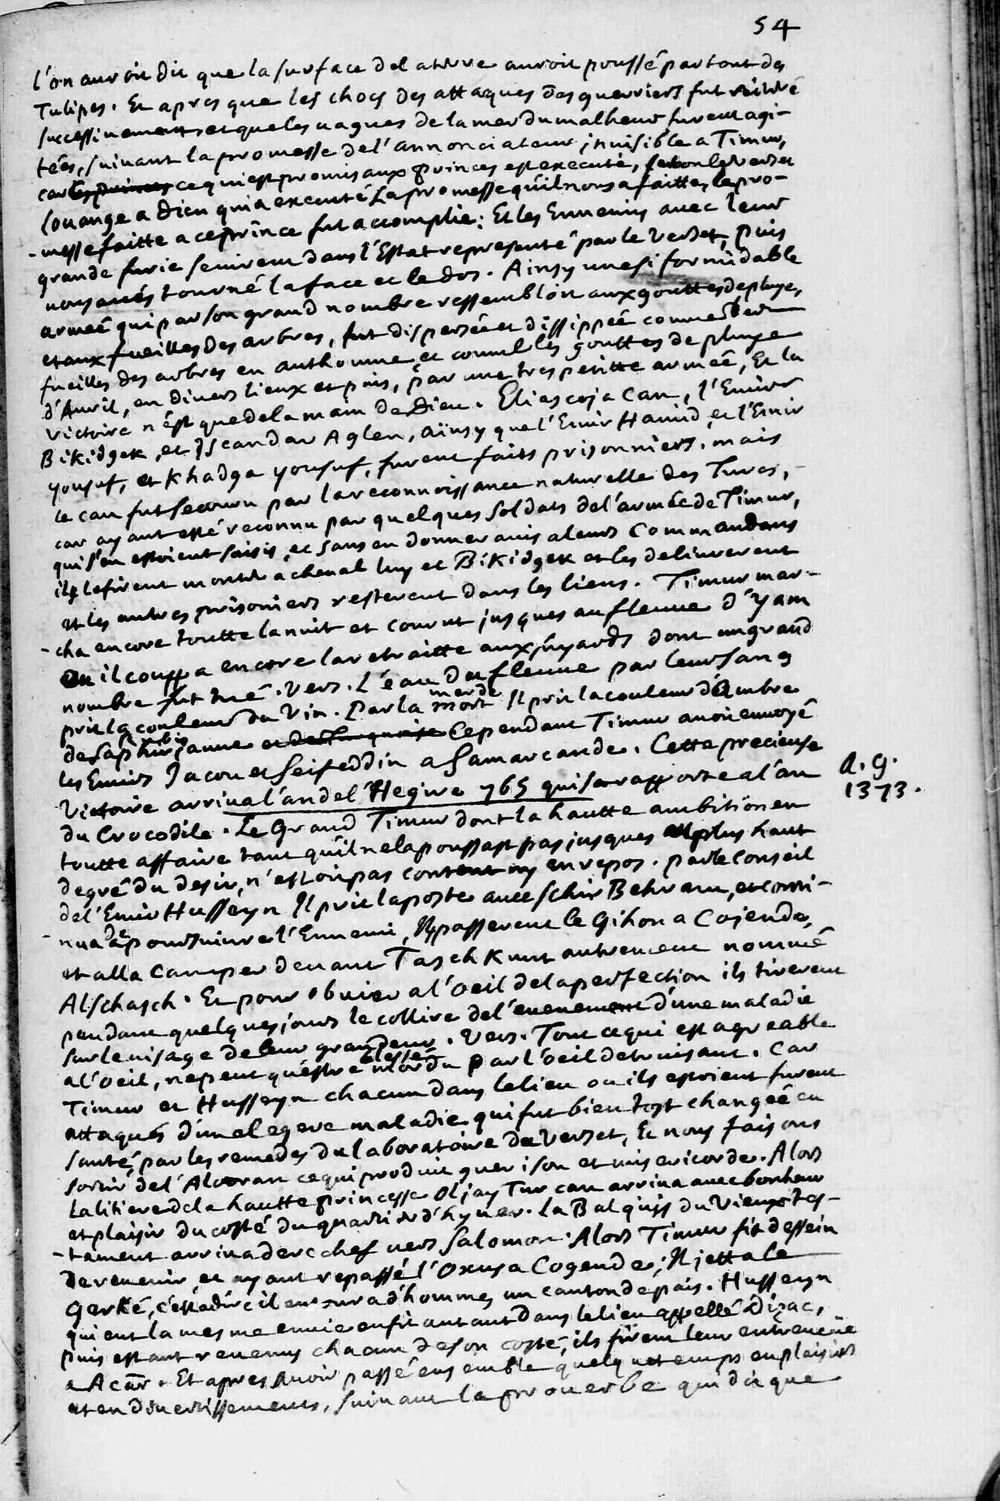 54
l'on auroit dit que la surface de la terre auroit poussé par tout des
Tulipes. Et apres que les chocs des attaques des guerriers fut réitéré
successivement et que les vagues de la mer du malheur furent agi-
tées, suivant la promesse de l'annonciateur invisible a Timur,
car les princes ce qui est promis aux princes est executé, selon le verset
louange a Dieu qui a executé la promesse qu'il nous a faitte, la pro-
-messe faitte a ce prince fut accomplie: Et les Ennemis avec leur
grande furie se mirent dans l'Estat representé par le Verset, puis
vous avés tourné la face et le dos. Ainsy une si formidable
armeé qui par son grand nombre ressembloit aux gouttes de pluye,
et aux fueilles des arbres, fut dispersée et dissippeé comme les
fueilles des arbres en authonne et comme les gouttes de pluye
d'Avril, en divers lieux et païs, par une tres petitte armeé, Et la
Victoire n'est que de la main de Dieu. Elias coja Can, l'Emir
Bikidgek, et Iscandar Aglen, aïnsy que l'Emir Hamid, et l'Emir
yousuf, et Khadga yousuf, furent faits prisonniers, mais
le can fut secouru par la reconnoissance naturelle des Turcs,
car ayant esté reconnu par quelques soldats de l'armée de Timur,
qui s'en estoient saisis, et sans en donner avis a leurs Commandans
ils le firent monter a cheval luy et Bikidgek et les delivrerent
et les autres prisoniers resterent dans les liens. Timur mar-
-cha encore toutte la nuit et courut jusques au fleuve d'yam
ou il coupa encore la retraitte aux fuyards dont un grand
nombre fut tué. Vers. L'eau du fleuve par leur sang
prit la couleur du Vin. Par la mort Il prit la couleur d'Ambre
de saphir jaune Cependant Timur avoit envoyé
les Emirs Jacou et Seifeddin a Samarcande. Cette precieuse
Victoire arriva l'an de l'Hegire 765 qui se rapporte a l'an
a. g.
1373.
du Crocodile. Le Grand Timur dont la hautte ambition en
toutte affaire tant qu'il ne la poussast pas jusques au plus haut
degré du desir, n'estoit pas content ny en repos. par le conseil
de l'Emir Husseyn Il prit la poste avec Schir Behram, et conti-
-nua de poursuivre l'Ennemi, Ils passerent le Gihon a Cojende,
et alla camper devant Taschkunt autrement nommé
Alschasch. Et pour obvier a l'oeil de la perfection ils tirerent
pendant quelques jours le collire de l'evenement d'une maladie
sur le visage de leur grandeur. Vers. Tout ce qui est agreable
a l'oeil, ne peut qu'estre blessé par l'oeil detruisant. Car
Timur et Husseyn chacun dans le lieu ou ils estoient furent
attaqués d'une legere maladie qui fut bien tost changeé en
santé, par les remedes du laboratoire du Verset, Et nous faisons
sortir de l'Alcoran ce qui produit guerison et misericorde. Alors
La litiere de la hautte princesse Oljay Turcan arriva avec bonheur
et plaisir du costé du quartier d'hyver. la Balquiss du Vieux tes-
-tament arriva derechef vers Salomon. Alors Timur fit dessein
de revenir, et ayant repassé l'Oxus a Cogende; Il jetta le
Gerké, c'est a dire il entoura d'hommes un canton de païs. Husseyn
qui eut la mesme envie en fit autant dans le lieu appellé Dizac,
puis estant revenus chacun de son costé, ils firent leur entreveüe
a Acar. Et apres avoir passé ensemble quelque temps en plaisirs
et en divertissements, suivant le proverbe qui dit que